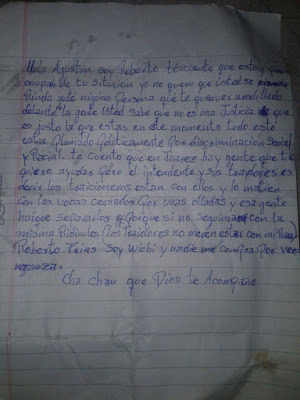 Hola Agustin soy Roberto te cuento que estoy preo
cupado de tu situcion yo no quero que usted se
Rinda ante niguna Persona que te quiere ver arodillado
delante la gente Usted sabe que no es ma Juticia que
es justo la que estas en este momento todo esto
esta Planiado Políticamente Por discriminación Social
y Racial. te cuento que en Juarez hay gente que te
quiere ayudar Pero el intendente y sus traidores es
decir los traicioneros estan con ellos y lo matien
con las vocas cerrados Por unas olladas y esa gente
hai que separarlos Porque si no seguimos con la
misma Ridicules (los traidores no mereen estar con mi
Roberto Frias Soy Wichi y nadie me compra Por ver
Cha chau que Dios te Acompañe